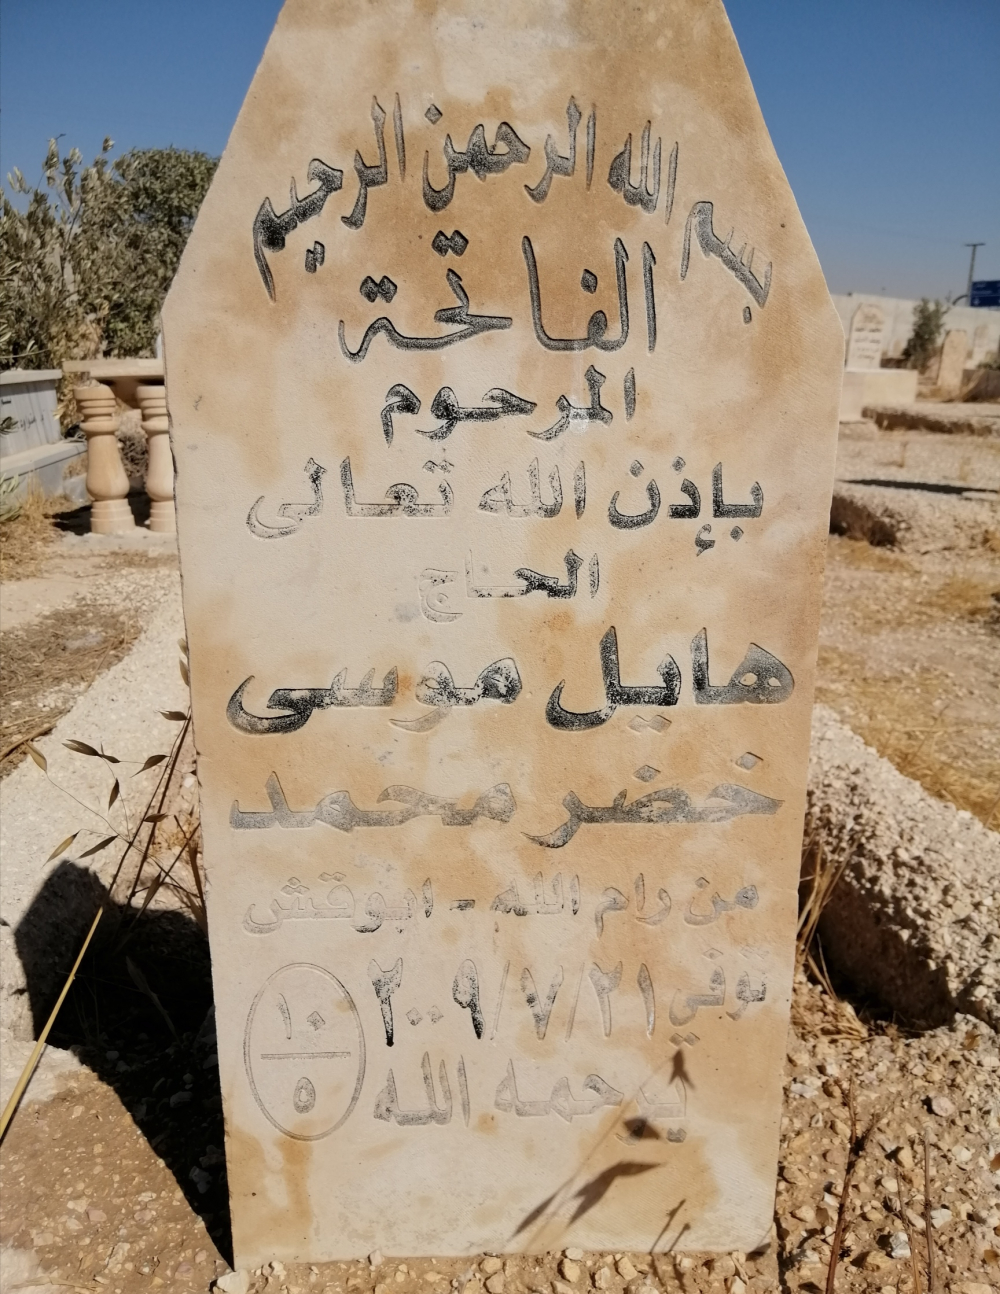 بسم الله الرحمن الرحيم
الفاتحة
المرحوم
بإذن الله تعالى
الحاج
هايل موسى
خضر محمد
من رام الله - ابوقش
توفي ٢٠٠٩/٧/٢١
يرحمه الله
١٠
٥